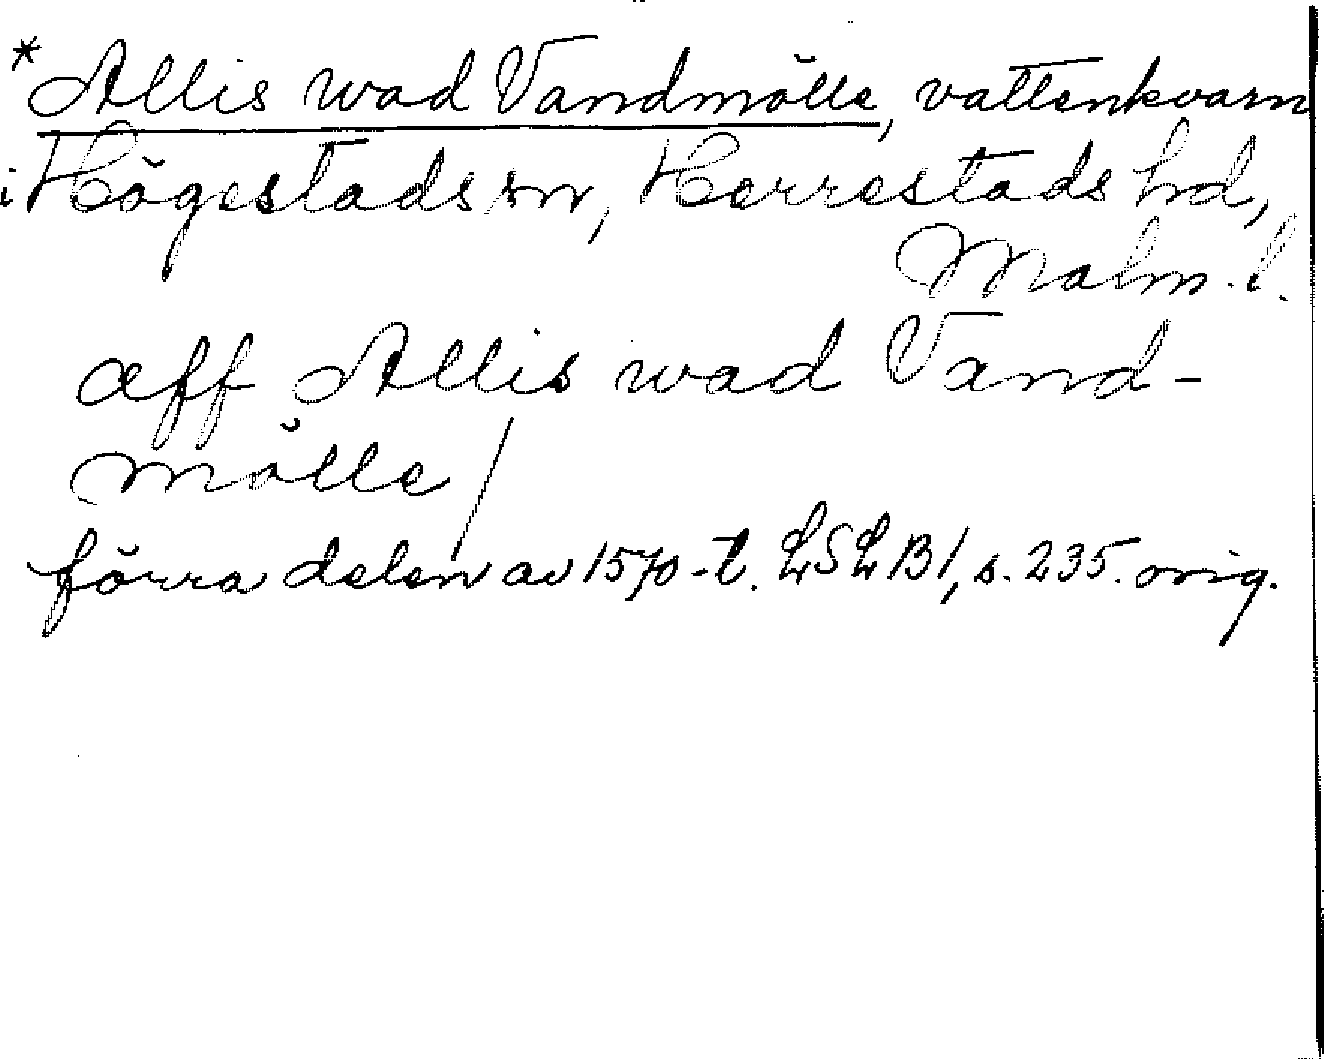 *Allis wad Vandmölle, vattenkvarn
i Högestads sn, Herrestads hd,
Malm. l.
aff Allis wad Vand-
mölle/
förra delen av 1570-t. LSLB1, s. 235. orig.